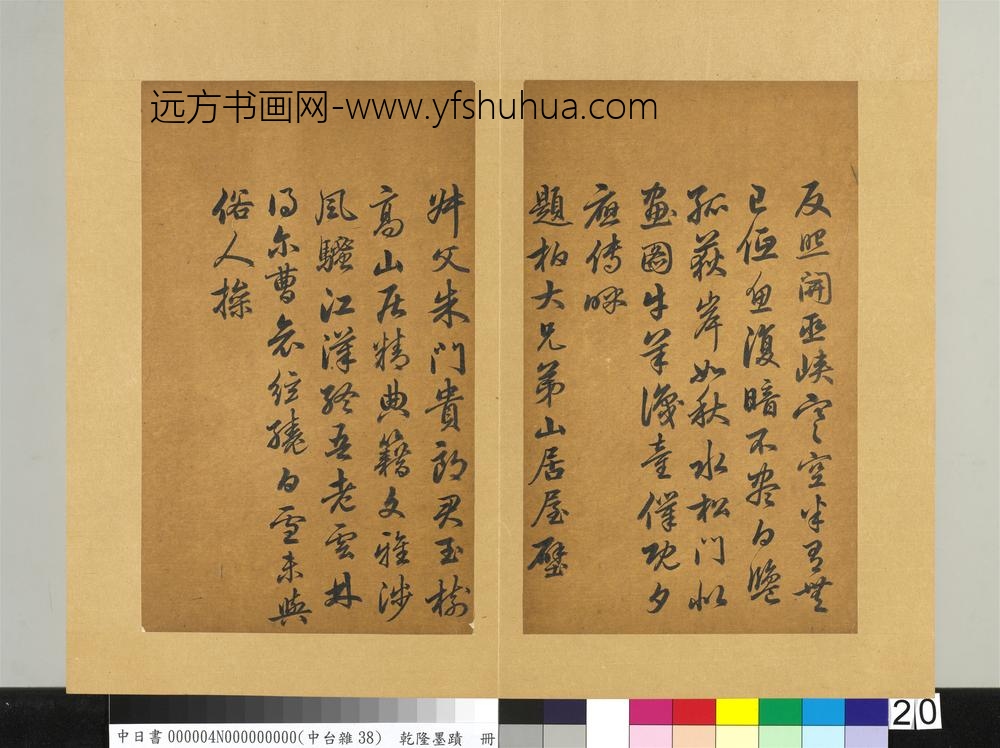 远方书画网-www.yfshuhua.com
反照開巫峽寒空半有無
已低魚復暗不盡白鹽
孤荻岸如秋水松門似
畫圖牛羊識童僕既夕
應傳呼
題柏大兄弟山居屋壁
叔父朱門貴郎君玉樹
高山居精典籍文雅涉
風騷江漢終吾老雲林
得尔曹哀絃繞白雪未與
俗人操
20
中日書 000004N000000000(中台雜 38) 乾隆墨蹟 冊